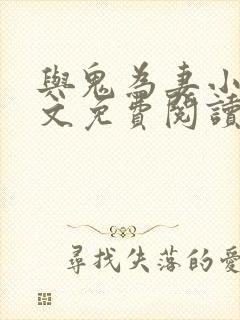 與鬼為妻小
文免費閱讀
尋找失落的愛